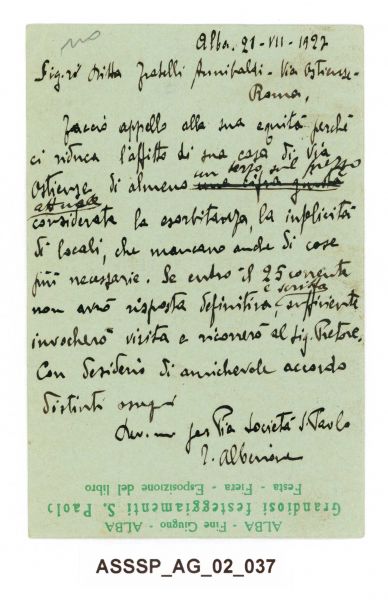 Alba, 21-VII-1927
Sig.ri Ditta Fratelli Annibaldi - Via Ostiense -
Roma,
Faccio appello alla sua equità perché
ci riduca l'affitto di sua casa di via
un terzo sul prezzo
Ostiense di almeno una cifra giusta
attuale
considerata la esorbitanza, la
di locali, che mancano anche di cose
più necessarie. Se entro il 25 corrente
e scritta
non avrò risposta definitiva,
invocherò visita e ricorrerò al Sig. Pretore.
Con desiderio di amichevole accordo
distinti ossequi
Dev.mo per Pia Società S. Paolo
T. Alberione
ALBA - Fine Giugno - ALBA
Grandiosi festeggiamenti S. Paolo
Festa - Fiera - Esposizione del libro
ASSSP_AG_02_037